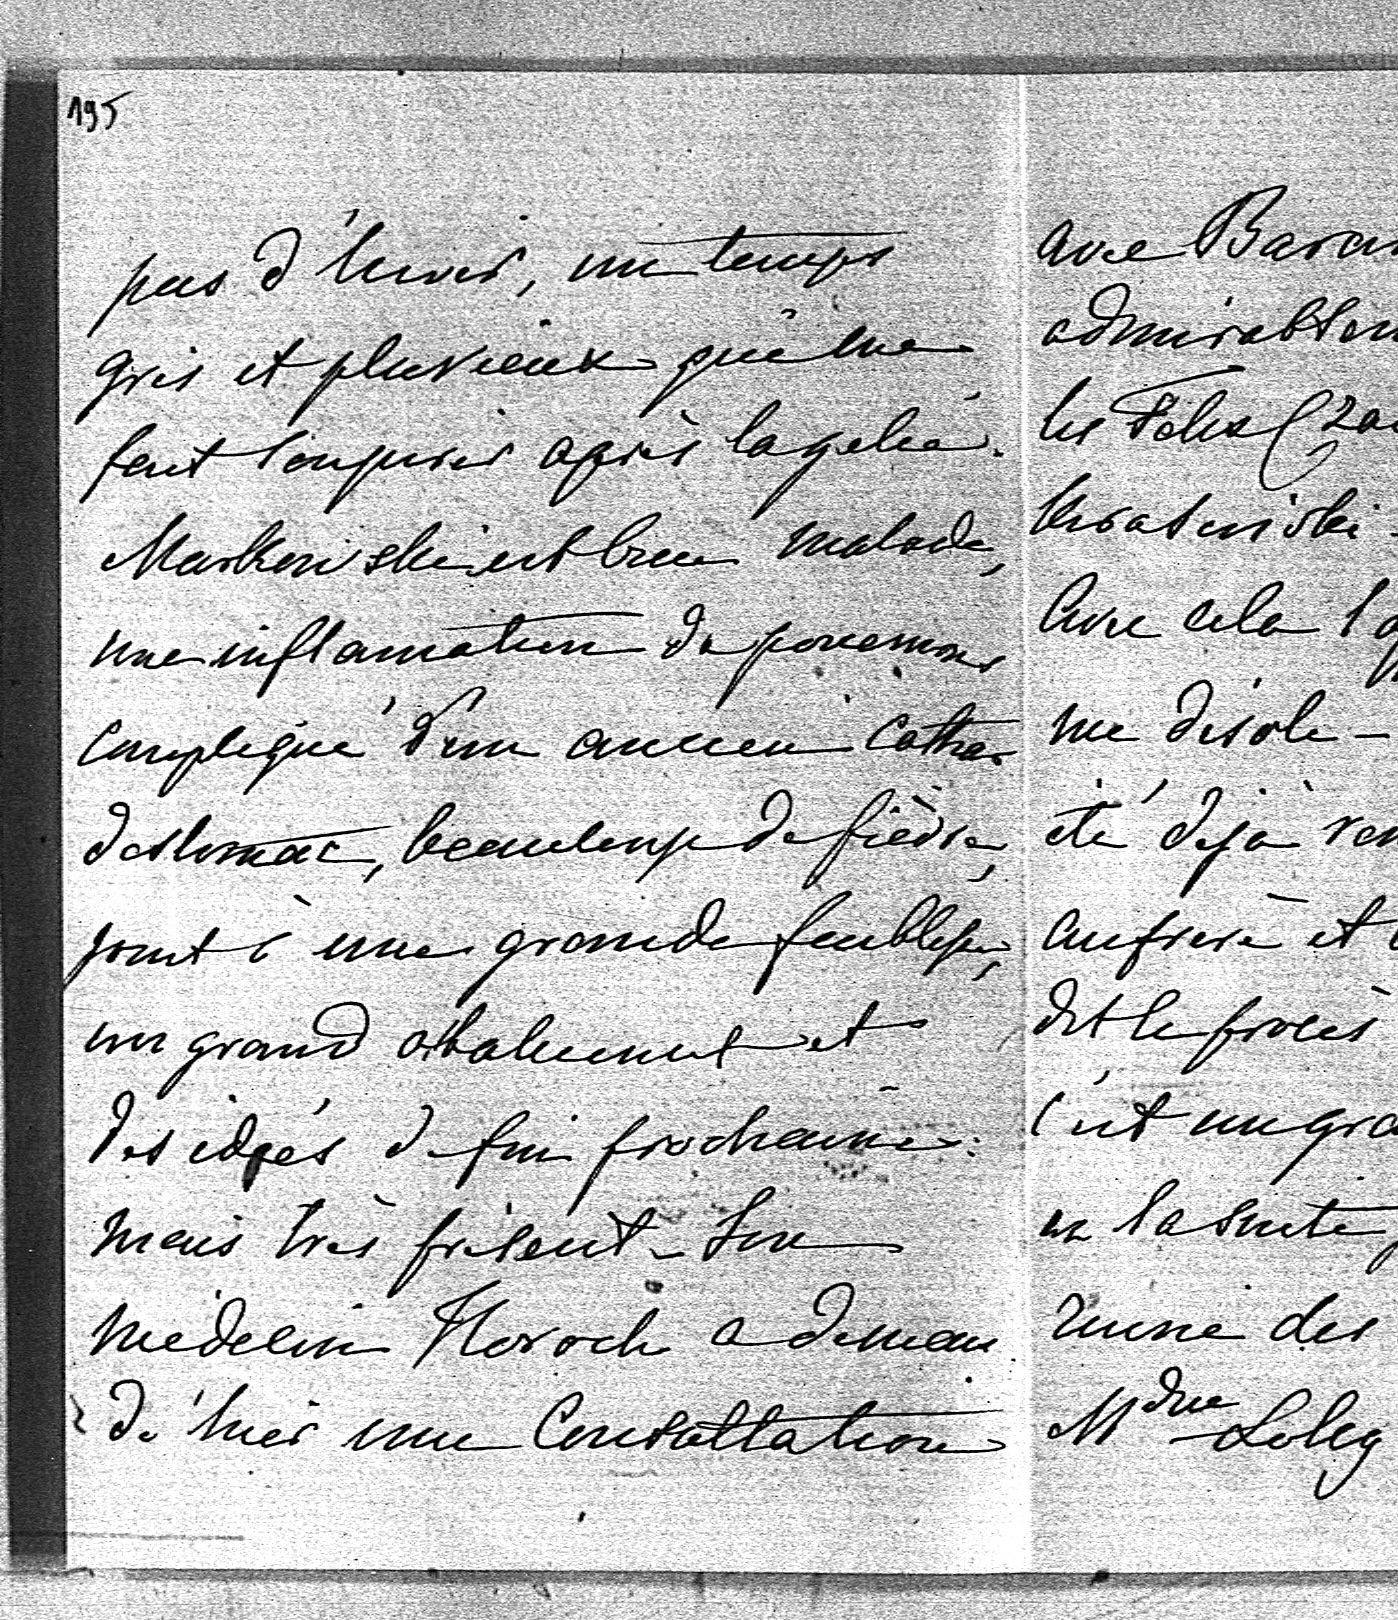 195
pas d'hiver, un temps
gris et pluvieux qui me
fait soupirer après la gelée.
Markowski est bien malade,
une inflamation de poumons
compliqué d'un ancien cathar
d'estomac, beaucoup de fièvre,
joint à une grande faiblesse,
un grand abatement et
des idées de fin prochaine.
mais très présent. Son
médecin Horoch a deman
dé hier une Consultation
avec Baran
admirablem
les Felix
Avec cela l'
me désole –
été déjà
au frère et
dit le procès
c'est un gra
la suite
ruine des
Mdme